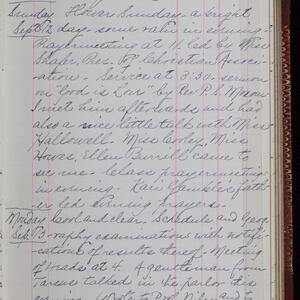 Sunday Flower Sunday - a bright
Sept. 12 day - some rain in evening -
Prayermeeting at 11, led by Miss
Shafer, Pres. of Christian Associ-
ation - Service at 3:30 - sermon
on "God is Love" by Rev. P. S.
I met him afterwards and had
also a nice little talk with Miss
Hallowell. Miss Cooley, Miss
Howes, Ellen Burrell came to
see me. Class prayermeetings
in evening - fath-
er led evening prayers.
Monday Cool and clear. Schedule and Geog-
Sep. 13 raphy examinations with notifi-
cations of results thereof. Meeting
of Heads at 4. A gentleman from
Tarsus talked in the parlor this
evening. Wrote to Prof. and to